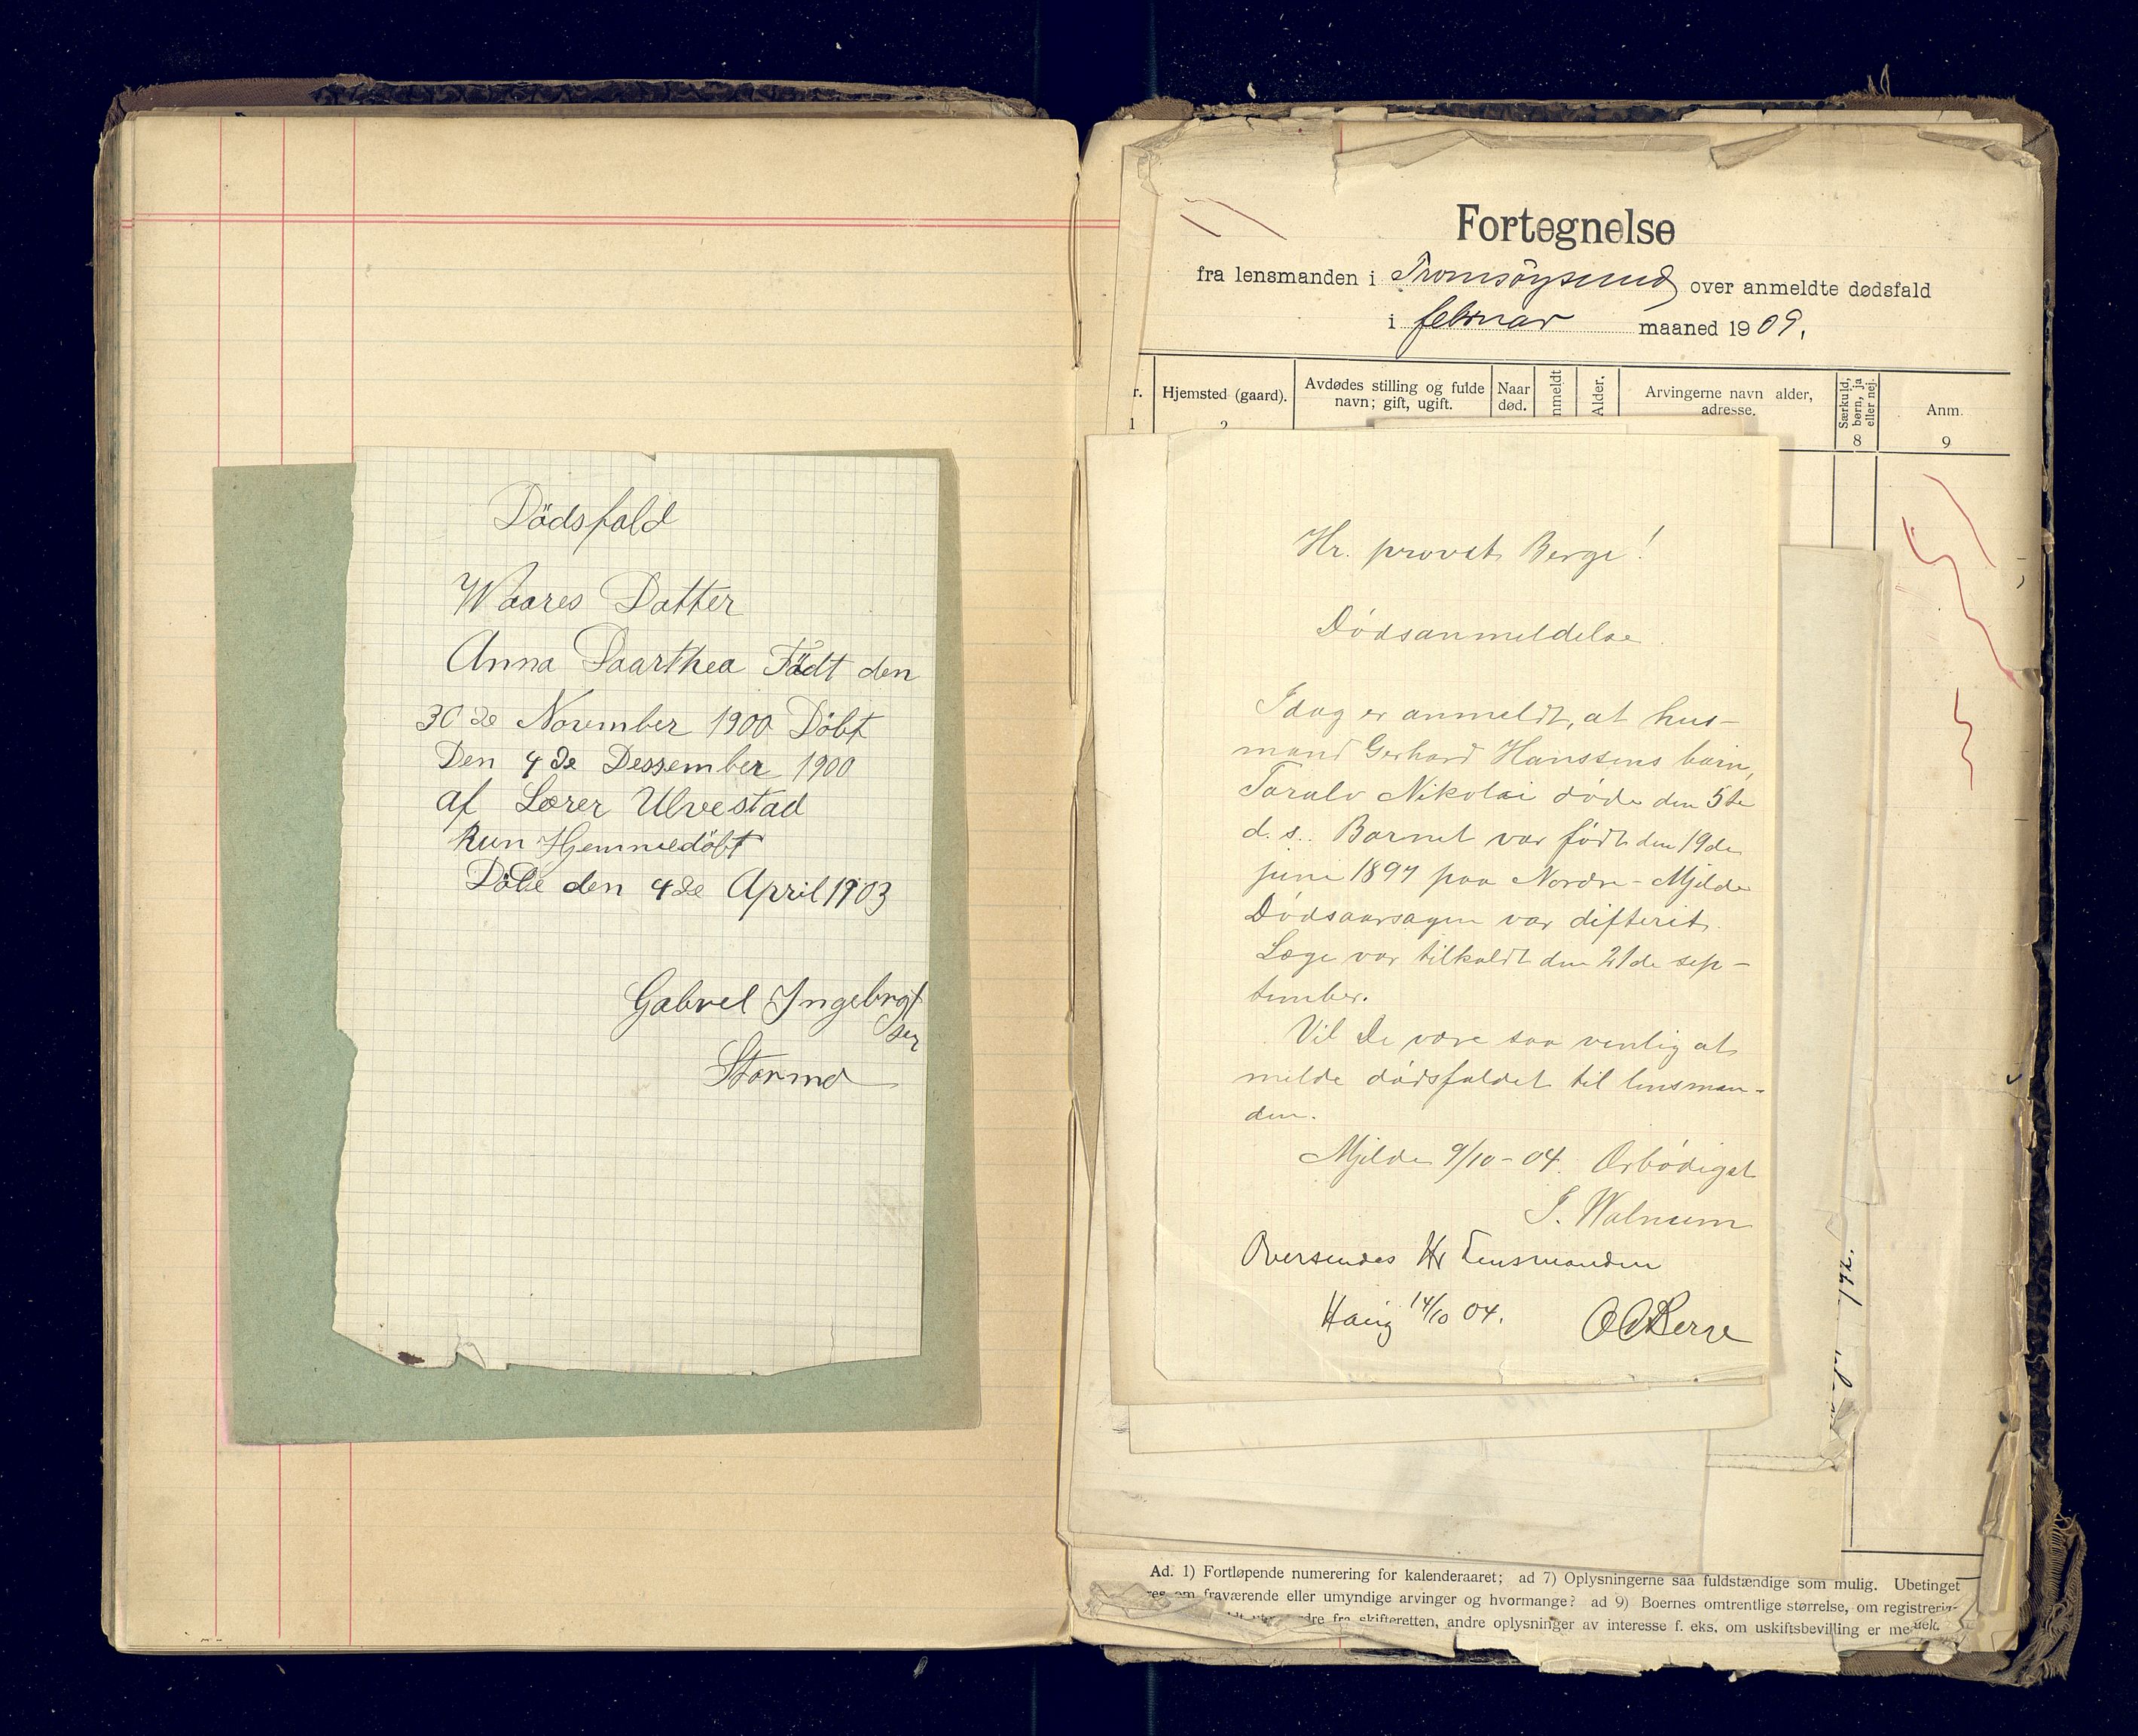 Dödsfald
Waares Datter
Anna Daarthea Födt den
30 de November 1900 Döbt
Den 4 de Dessember 1900
af Lærer Ulvestad
kun Hjemmedöbt
Döde den 4 de April 1903
Gabrel Ingebrgt
sen
Fortegnelse
fra lensmanden i Tromsøysund over anmeldte dødsfald
i februar maaned 1909.
Hjemsted (gaard).
Avdødes stilling og fulde
navn; gift, ugift.
Naar
død.
nmeldt
Alder.
Arvingerne navn alder,
adresse.
Særkuld,
børn, ja
eller nej.
Anm.
1
2
8
9
Hr. provst Berge!
Dödsanmeldelse.
Idag er anmeldt, at hus-
mand Gerhard Hanssens barn,
Toralv Nikolai döde den 5te
d. s.. Barnet var födt den 19de
juni 1897 paa Nordre-Mjelde
Dödsaarsagen var difterit.
Læge var tilkaldt den 21de sep-
tember.
Vil De være saa venlig at
melde dödsfaldet til lensman-
den.
Mjelde 9/10-04. Ærbödigst
J. Walnum
Oversendes Hr Lensmanden
14/10 04.
Ad. 1) Fortløpende numerering for kalenderaaret; ad 7) Oplysningerne saa fuldstændige som mulig. Ubetinget
fraværende eller umyndige arvinger og hvormange? ad 9) Boernes omtrentlige størrelse, om registrerin-
fra skifteretten, andre oplysninger av interesse f. eks. om uskiftsbevilling er